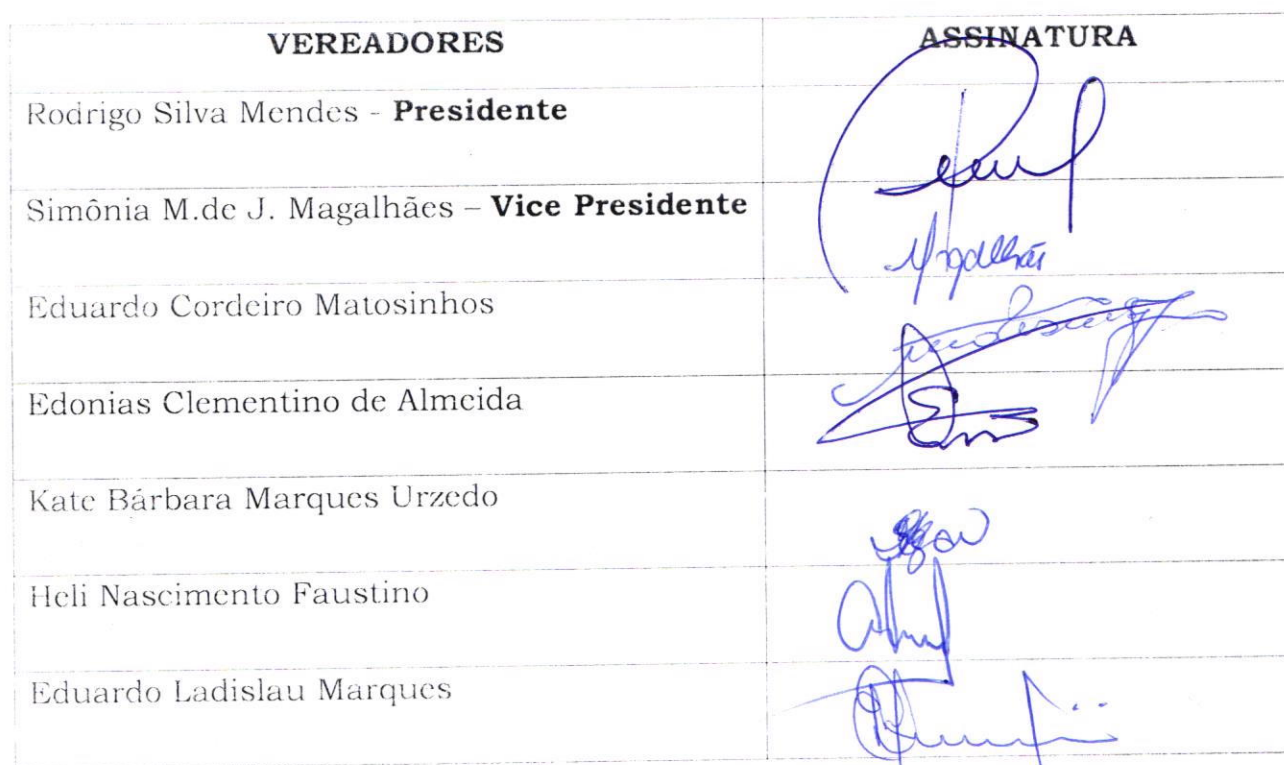 VEREADORES ASSINATURA
Rodrigo Silva Mendes - Presidente
Simônia M.de J. Magalhães – Vice Presidente
Magalhães
Eduardo Cordeiro Matosinhos
Edonias Clementino de Almeida
Kate Bárbara Marques Urzedo
Heli Nascimento Faustino
Eduardo Ladislau Marques